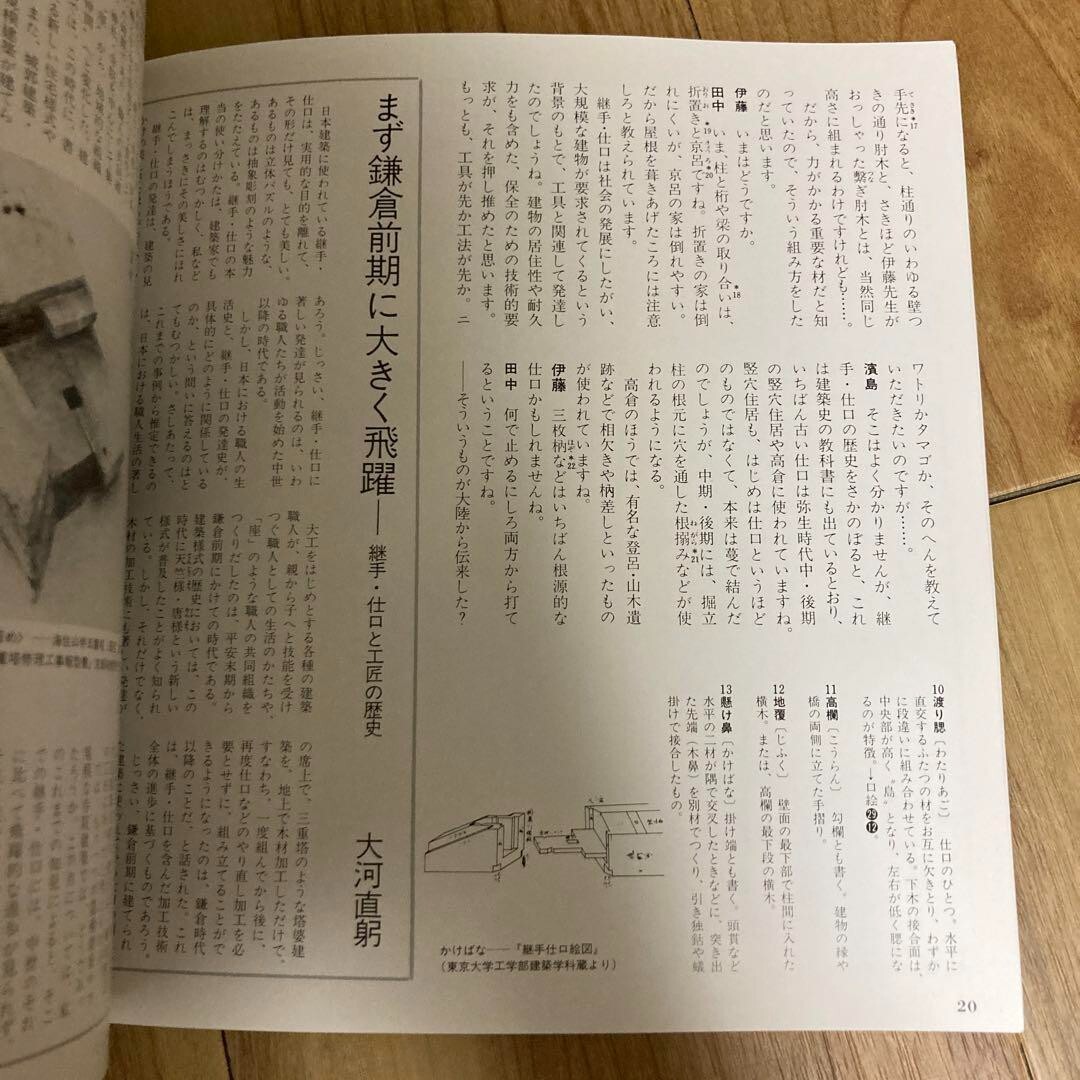 手先になると、柱通りのいわゆる壁つ
きの通り肘木と、さきほど伊藤先生が
おっしゃった繋ぎ肘木とは、当然同じ
高さに組まれるわけですけれども……。
だから、力がかかる重要な材だと知
っていたので、そういう組み方をした
のだと思います。
伊藤　いまはどうですか。
田中　いま、柱と桁や梁の取り合い*18は、
折置き*19と京呂*20ですね。折置きの家は倒
れにくいが、京呂の家は倒れやすい。
だから屋根を葺きあげたころには注意
しろと教えられています。
継手・仕口は社会の発展にしたがい、
大規模な建物が要求されてくるという
背景のもとで、工具と関連して発達し
たのでしょうね。建物の居住性や耐久
力をも含めた、保全のための技術的要
求が、それを押し推めたと思います。
もっとも、工具が先か工法が先か。ニ
ワトリかタマゴか、そのへんを教えて
いただきたいのですが……。
濱島　そこはよく分かりませんが、継
手・仕口の歴史をさかのぼると、これ
は建築史の教科書にも出ているとおり、
いちばん古い仕口は弥生時代中・後期
の竪穴住居や高倉に使われていますね。
竪穴住居も、はじめは仕口というほど
のものではなくて、本来は蔓で結んだ
のでしょうが、中期・後期には、掘立
柱の根元に穴を通した根搦み*21などが使
われるようになる。
高倉のほうでは、有名な登呂・山木遺
跡などで相欠きや枘差しといったもの
が使われていますね。
伊藤　三枚枘*22などはいちばん根源的な
仕口かもしれませんね。
田中　何で止めるにしろ両方から打て
るということですね。
――そういうものが大陸から伝来した？
10 渡り腮〔わたりあご〕　仕口のひとつ。水平に
直交するふたつの材をお互に欠きとり、わずか
に段違いに組み合わせている。下木の接合面は、
中央部が高く〝島〟となり、左右が低く腮にな
るのが特徴。→口絵㉙⑫。
11 高欄〔こうらん〕　勾欄とも書く。建物の縁や
橋の両側に立てた手摺り。
12 地覆〔じふく〕　壁面の最下部で柱間に入れた
横木。または、高欄の最下段の横木。
13 懸け鼻〔かけばな〕掛け端とも書く。頭貫など
水平の二材が隅で交叉したときなどに、突き出
た先端（木鼻）を別材でつくり、引き独鈷や蟻
掛けで接合したもの。
かけばな――『継手仕口絵図』
（東京大学工学部建築学科蔵より）
まず鎌倉前期に大きく飛躍――継手・仕口と工匠の歴史
大河直躬
日本建築に使われている継手・
仕口は、実用的な目的を離れて、
その形だけ見ても、とても美しい。
あるものは立体パズルのような、
あるものは抽象彫刻のような魅力
をたたえている。継手・仕口の本
当の使い分けかたは、建築家でも
理解するのはむつかしく、私など
は、まっさきにその美しさにほれ
こんでしまうほうである。
継手・仕口の発達は、建築の見
あろう。じっさい、継手・仕口に
著しい発達が見られるのは、いわ
ゆる職人たちが活動を始めた中世
以降の時代である。
しかし、日本における職人の生
活史と、継手・仕口の発達史が、
具体的にどのように関係している
のか、という問いに答えるのはと
てもむつかしい。さしあたって、
これまでの事例から推定できるの
は、日本における職人生活の著し
大工をはじめとする各種の建築
職人が、親から子へと技能を受け
つぐ職人としての生活のかたちや、
「座」のような職人の共同組織を
つくりだしたのは、平安末期から
鎌倉前期にかけての時代である。
建築様式の歴史においては、この
時代に天竺様・唐様という新しい
様式が普及したことがよく知られ
ている。しかし、それだけでなく、
木材の加工技術にも著しい発達が
の席上で、三重塔のような塔婆建
築を、地上で木材加工しただけで、
すなわち、一度組んでから後に、
再度仕口などのやり直し加工を必
要とせずに、組み立てることがで
きるようになったのは、鎌倉時代
以降のことだ、と話された。これ
は、継手・仕口を含んだ加工技術
全体の進歩に基づくものであろう。
じっさい、鎌倉前期に建てられ
20